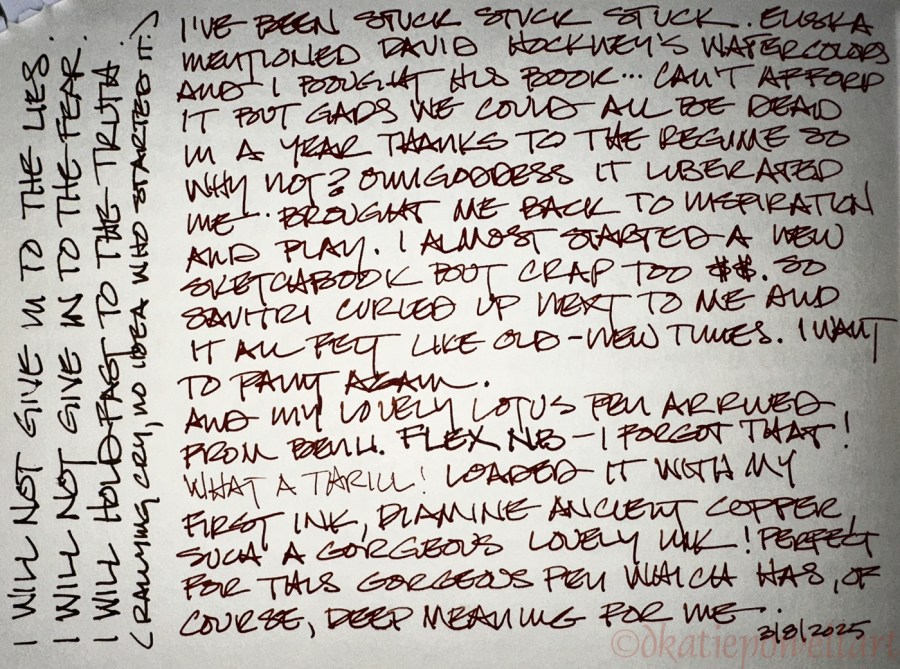 I'VE BEEN STUCK STUCK STUCK. ELISKA
MENTIONED DAVID HOCKNEY'S WATERCOLORS
AND I BOUGHT HIS BOOK... CAN'T AFFORD
IT BUT GADS WE COULD ALL BE DEAD
IN A YEAR THANKS TO THE REGIME SO
WHY NOT? OMGODDESS IT LIBERATED
ME... BROUGHT ME BACK TO INSPIRATION
AND PLAY. I ALMOST STARTED A NEW
SKETCHBOOK BUT CRAP TOO $$. SO
SAVITRI CURLED UP NEXT TO ME AND
IT ALL FELT LIKE OLD-NEW TIMES. I WANT
TO PAINT AGAIN.
AND MY LOVELY LOTUS PEN ARRIVED
FROM BENU. FLEX NIB - I FORGOT THAT!
WHAT A THRILL! LOADED IT WITH MY
FIRST INK, DIAMINE ANCIENT COPPER
SUCH A GORGEOUS LOVELY INK! PERFECT
FOR THIS GORGEOUS PEN WHICH HAS, OF
COURSE, DEEP MEANING FOR ME...
3/8/2025
I WILL NOT GIVE IN TO THE LIES.
I WILL NOT GIVE IN TO THE FEAR.
I WILL HOLD FAST TO THE TRUTH.
(RALLYING CRY, NO IDEA WHO STARTED IT.)
©dkatiepowellart